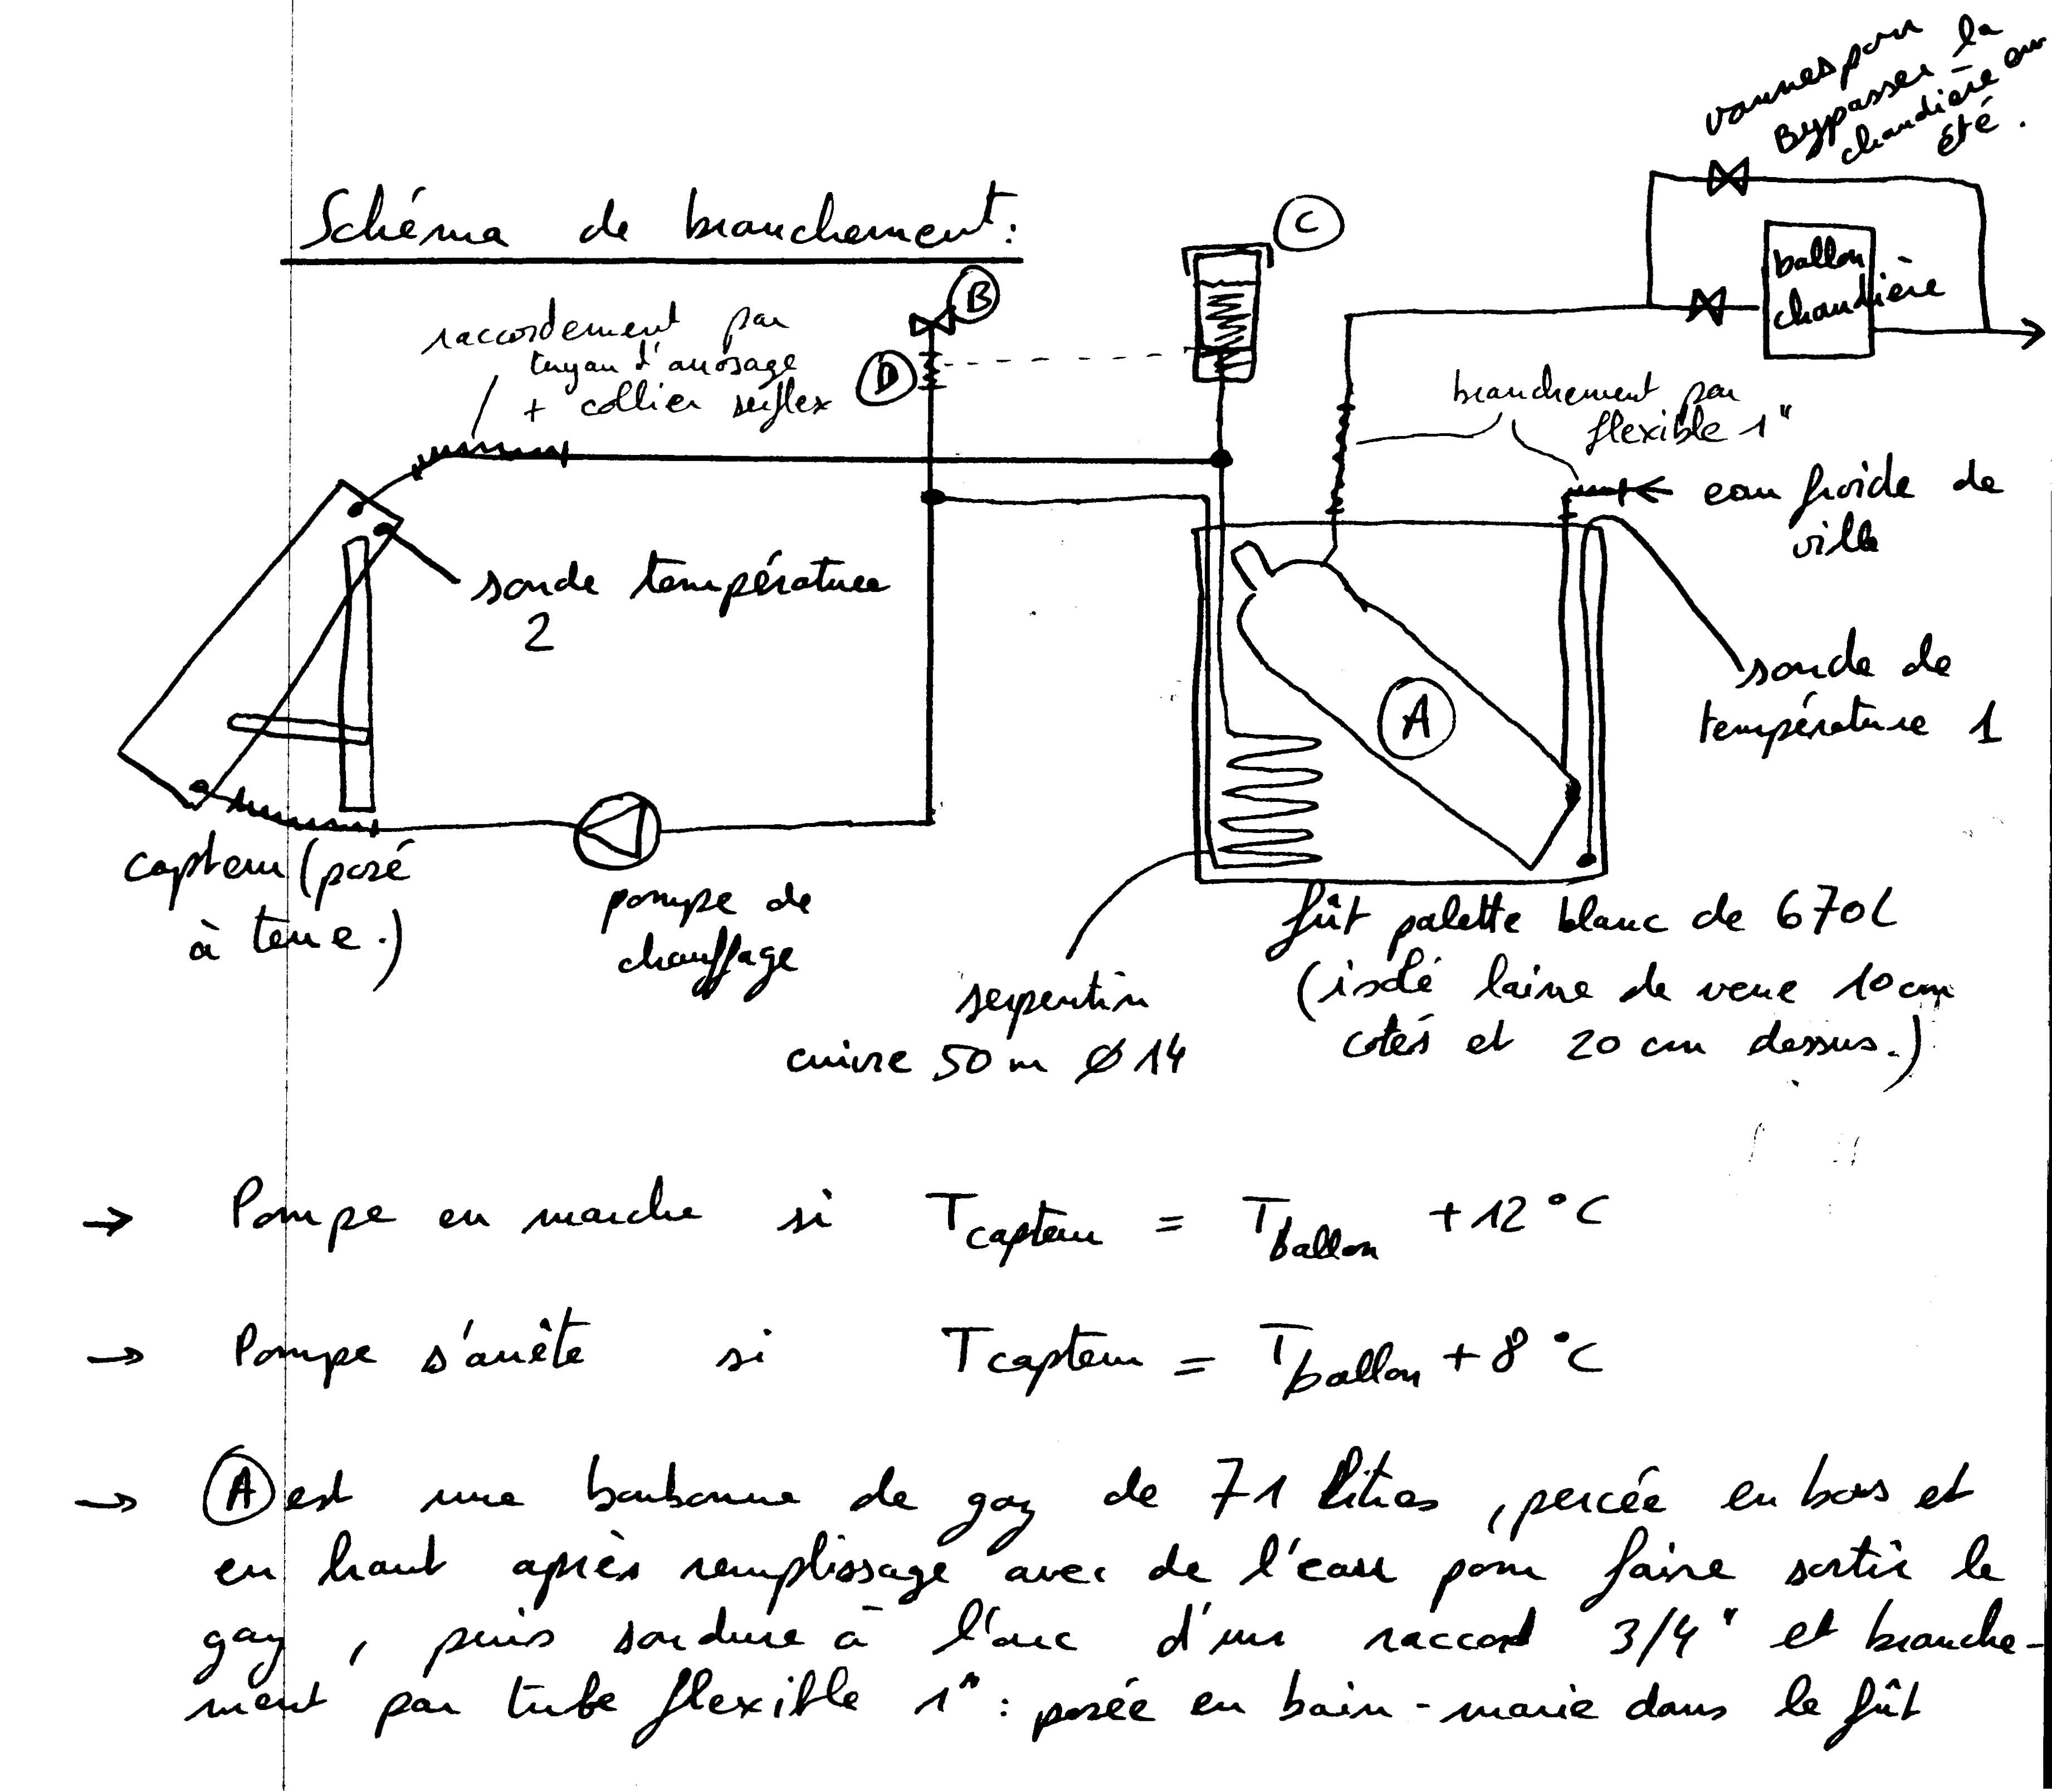 vannes pour
Bypasser la
chaudière en
été.
Schéma de branchement :
C
B
ballon
chaudière
raccordement par
tuyau d'arrosage
+ collier serflex
D
branchement par
flexible 1"
eau froide de
ville
sonde température
2
A
sonde de
température 1
capteur (posé
à terre.)
pompe de
chauffage
serpentin
cuivre 50 m Ø 14
fût palette blanc de 670L
(isolé laine de verre 10 cm
cotés et 20 cm dessus.)
→ Pompe en marche si Tcapteur = Tballon + 12 °C
→ Pompe s'arrête si Tcapteur = Tballon + 8 °C
→ A est une bonbonne de gaz de 71 litres, percée en bas et
en haut après remplissage avec de l'eau pour faire sortir le
gaz, puis soudure à l'arc d'un raccord 3/4" et branche-
ment par tube flexible 1" : posée en bain-marie dans le fût